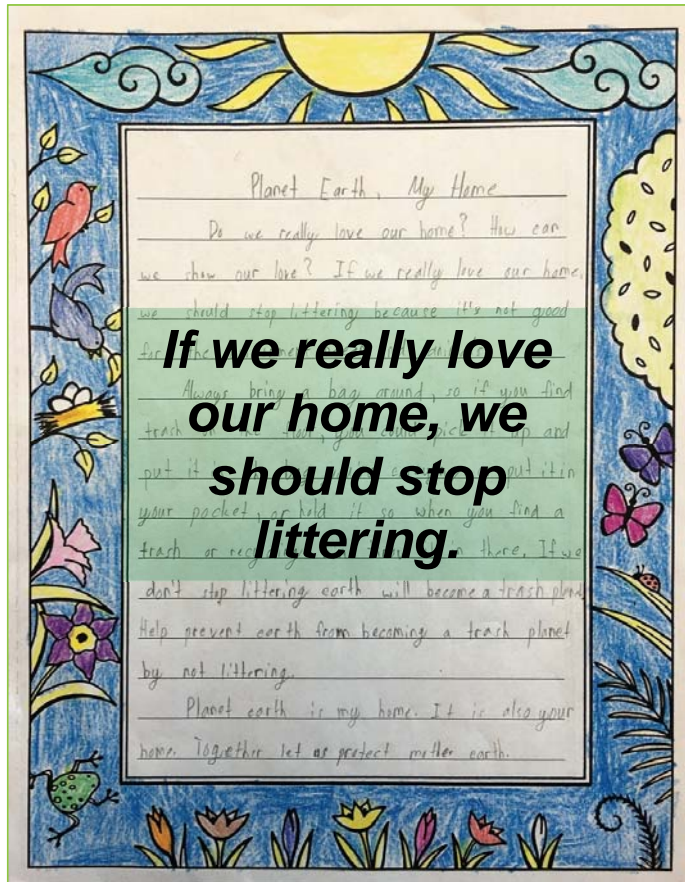 Planet Earth, My Home
Do we really love our home? How can
we show our love? If we really love our home,
we should stop littering because it's not good
for the
Always bring a bag around, so if you find
trash the floor, you could pick it up and
put it in put it in
your pocket, or hold it so when you find a
trash or in there. If we
don't stop littering earth will become a trash
Help prevent earth from becoming a trash planet
by not littering.
Planet earth is my home. It is also your
home. Together let us protect mother earth.
If we really love
our home, we
should stop
littering.